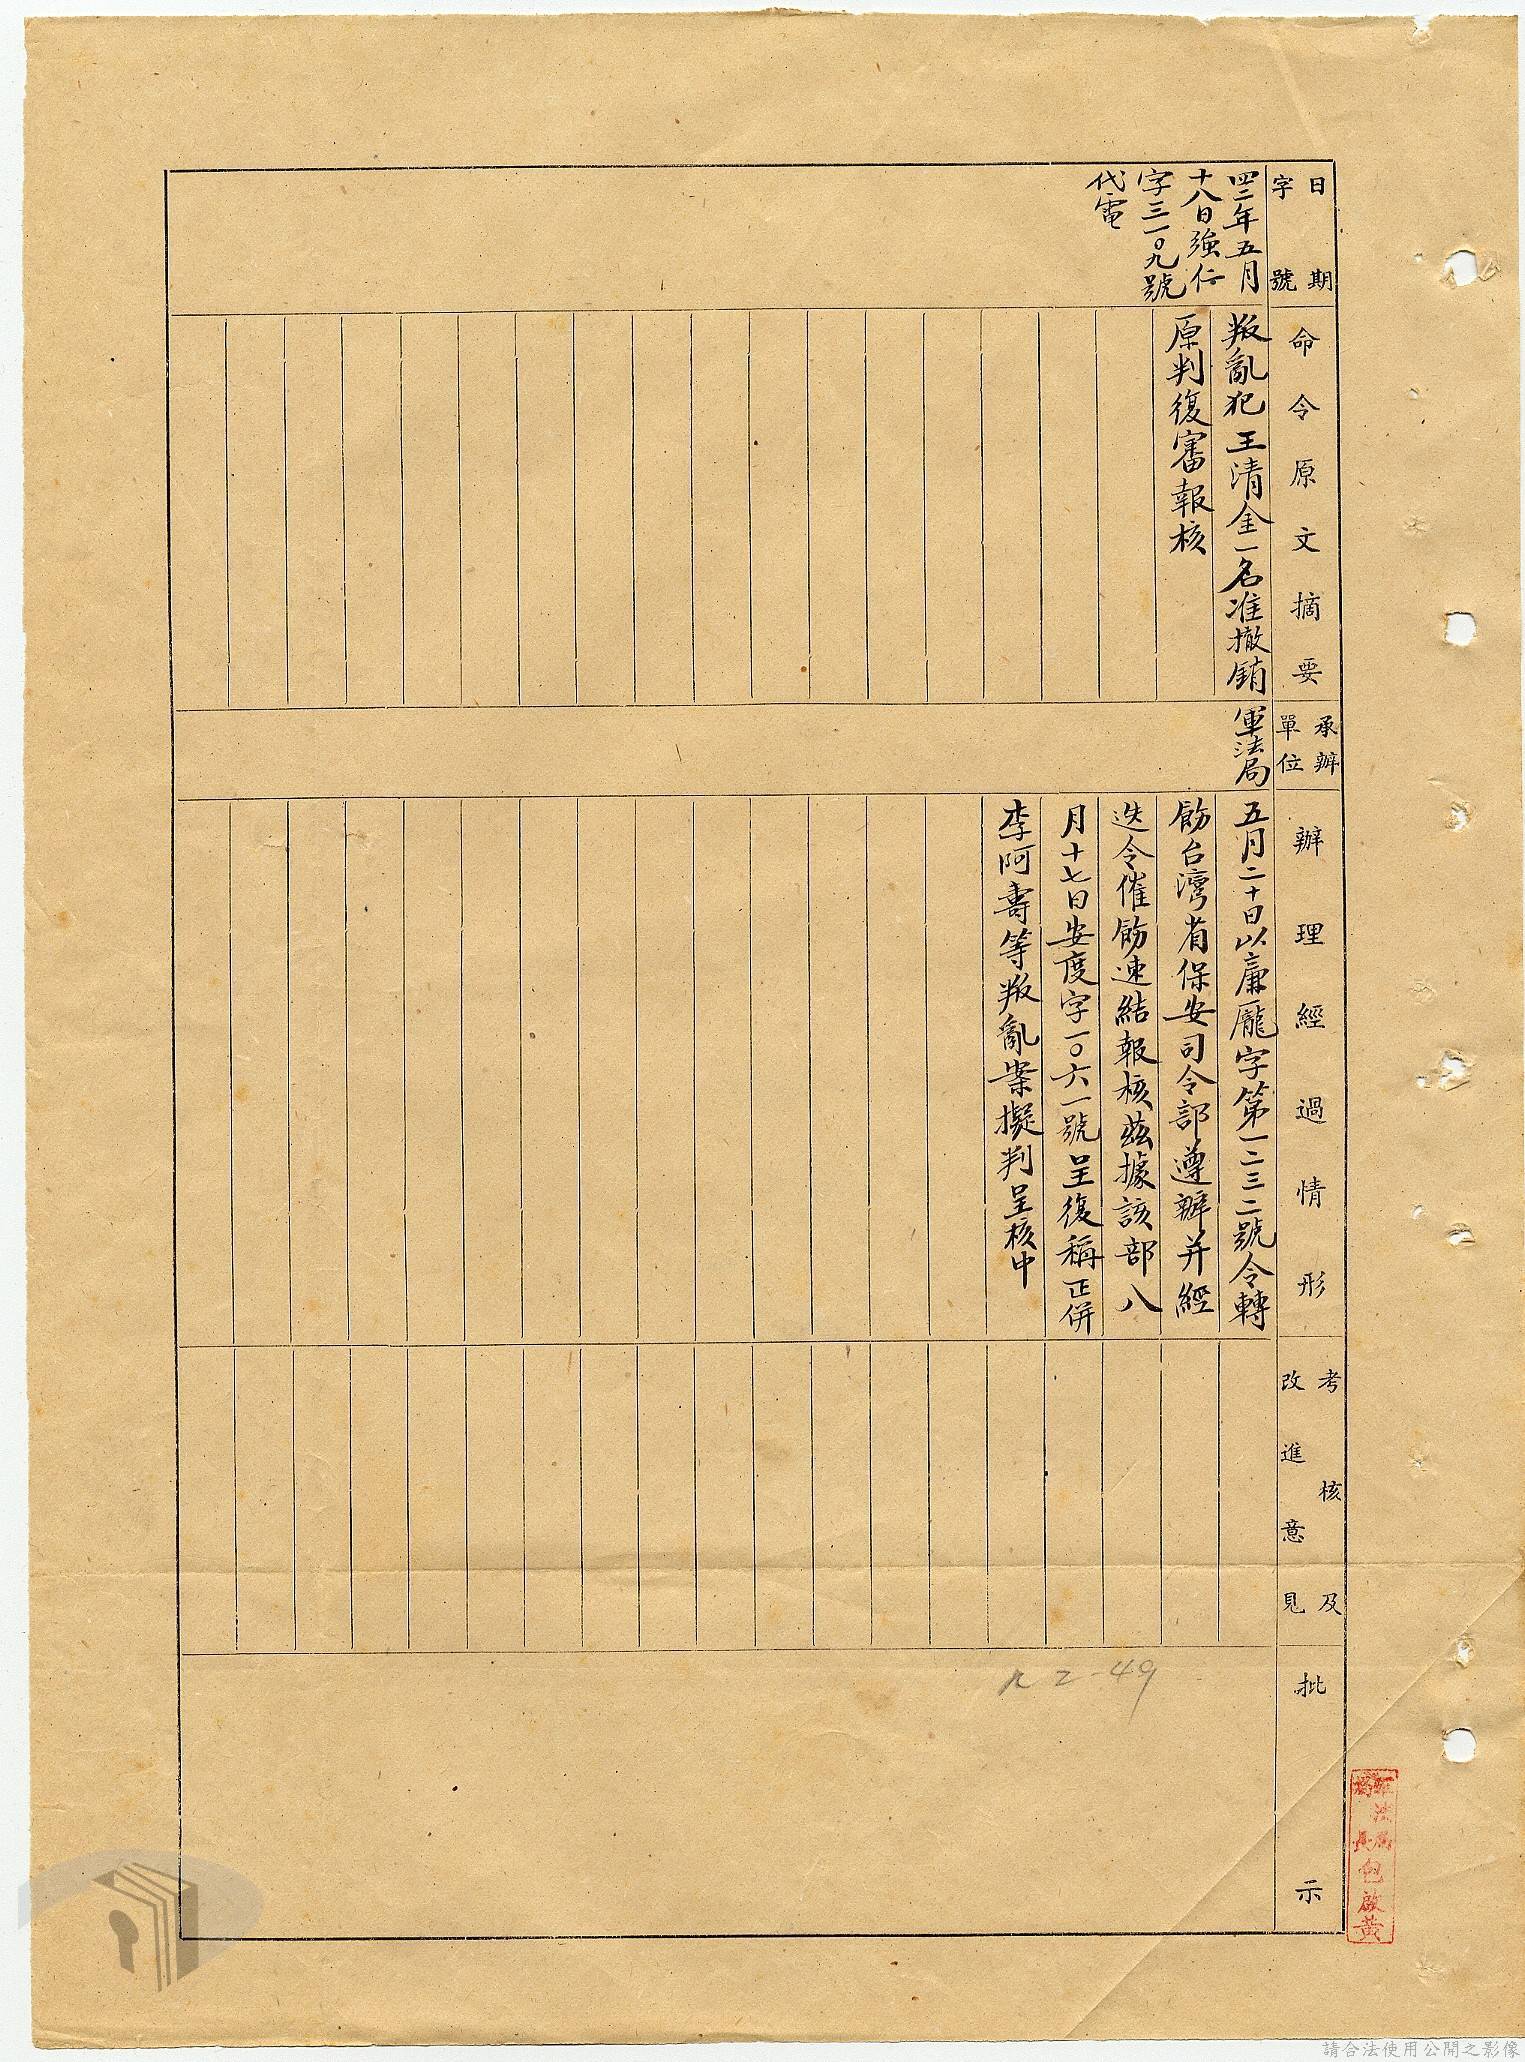 日期
字號
四二年五月
十八日強仁
字三一〇九號
代電
命令原文摘要
叛亂犯王清金一名准撤銷
原判復審報核
承辦
單位
軍法局
辦理經過情形
五月二十日以廉龐字第一二三二號令轉
飭台灣省保安司令部遵辦并經
迭令催飭速結報核茲據該部八
月十七日安度字一〇六一號呈復稱正併
李阿壽等叛亂案擬判呈核中
考核及
改進意見
批示
2-49
軍法局
局長包啟黃
請合法使用公開之影像